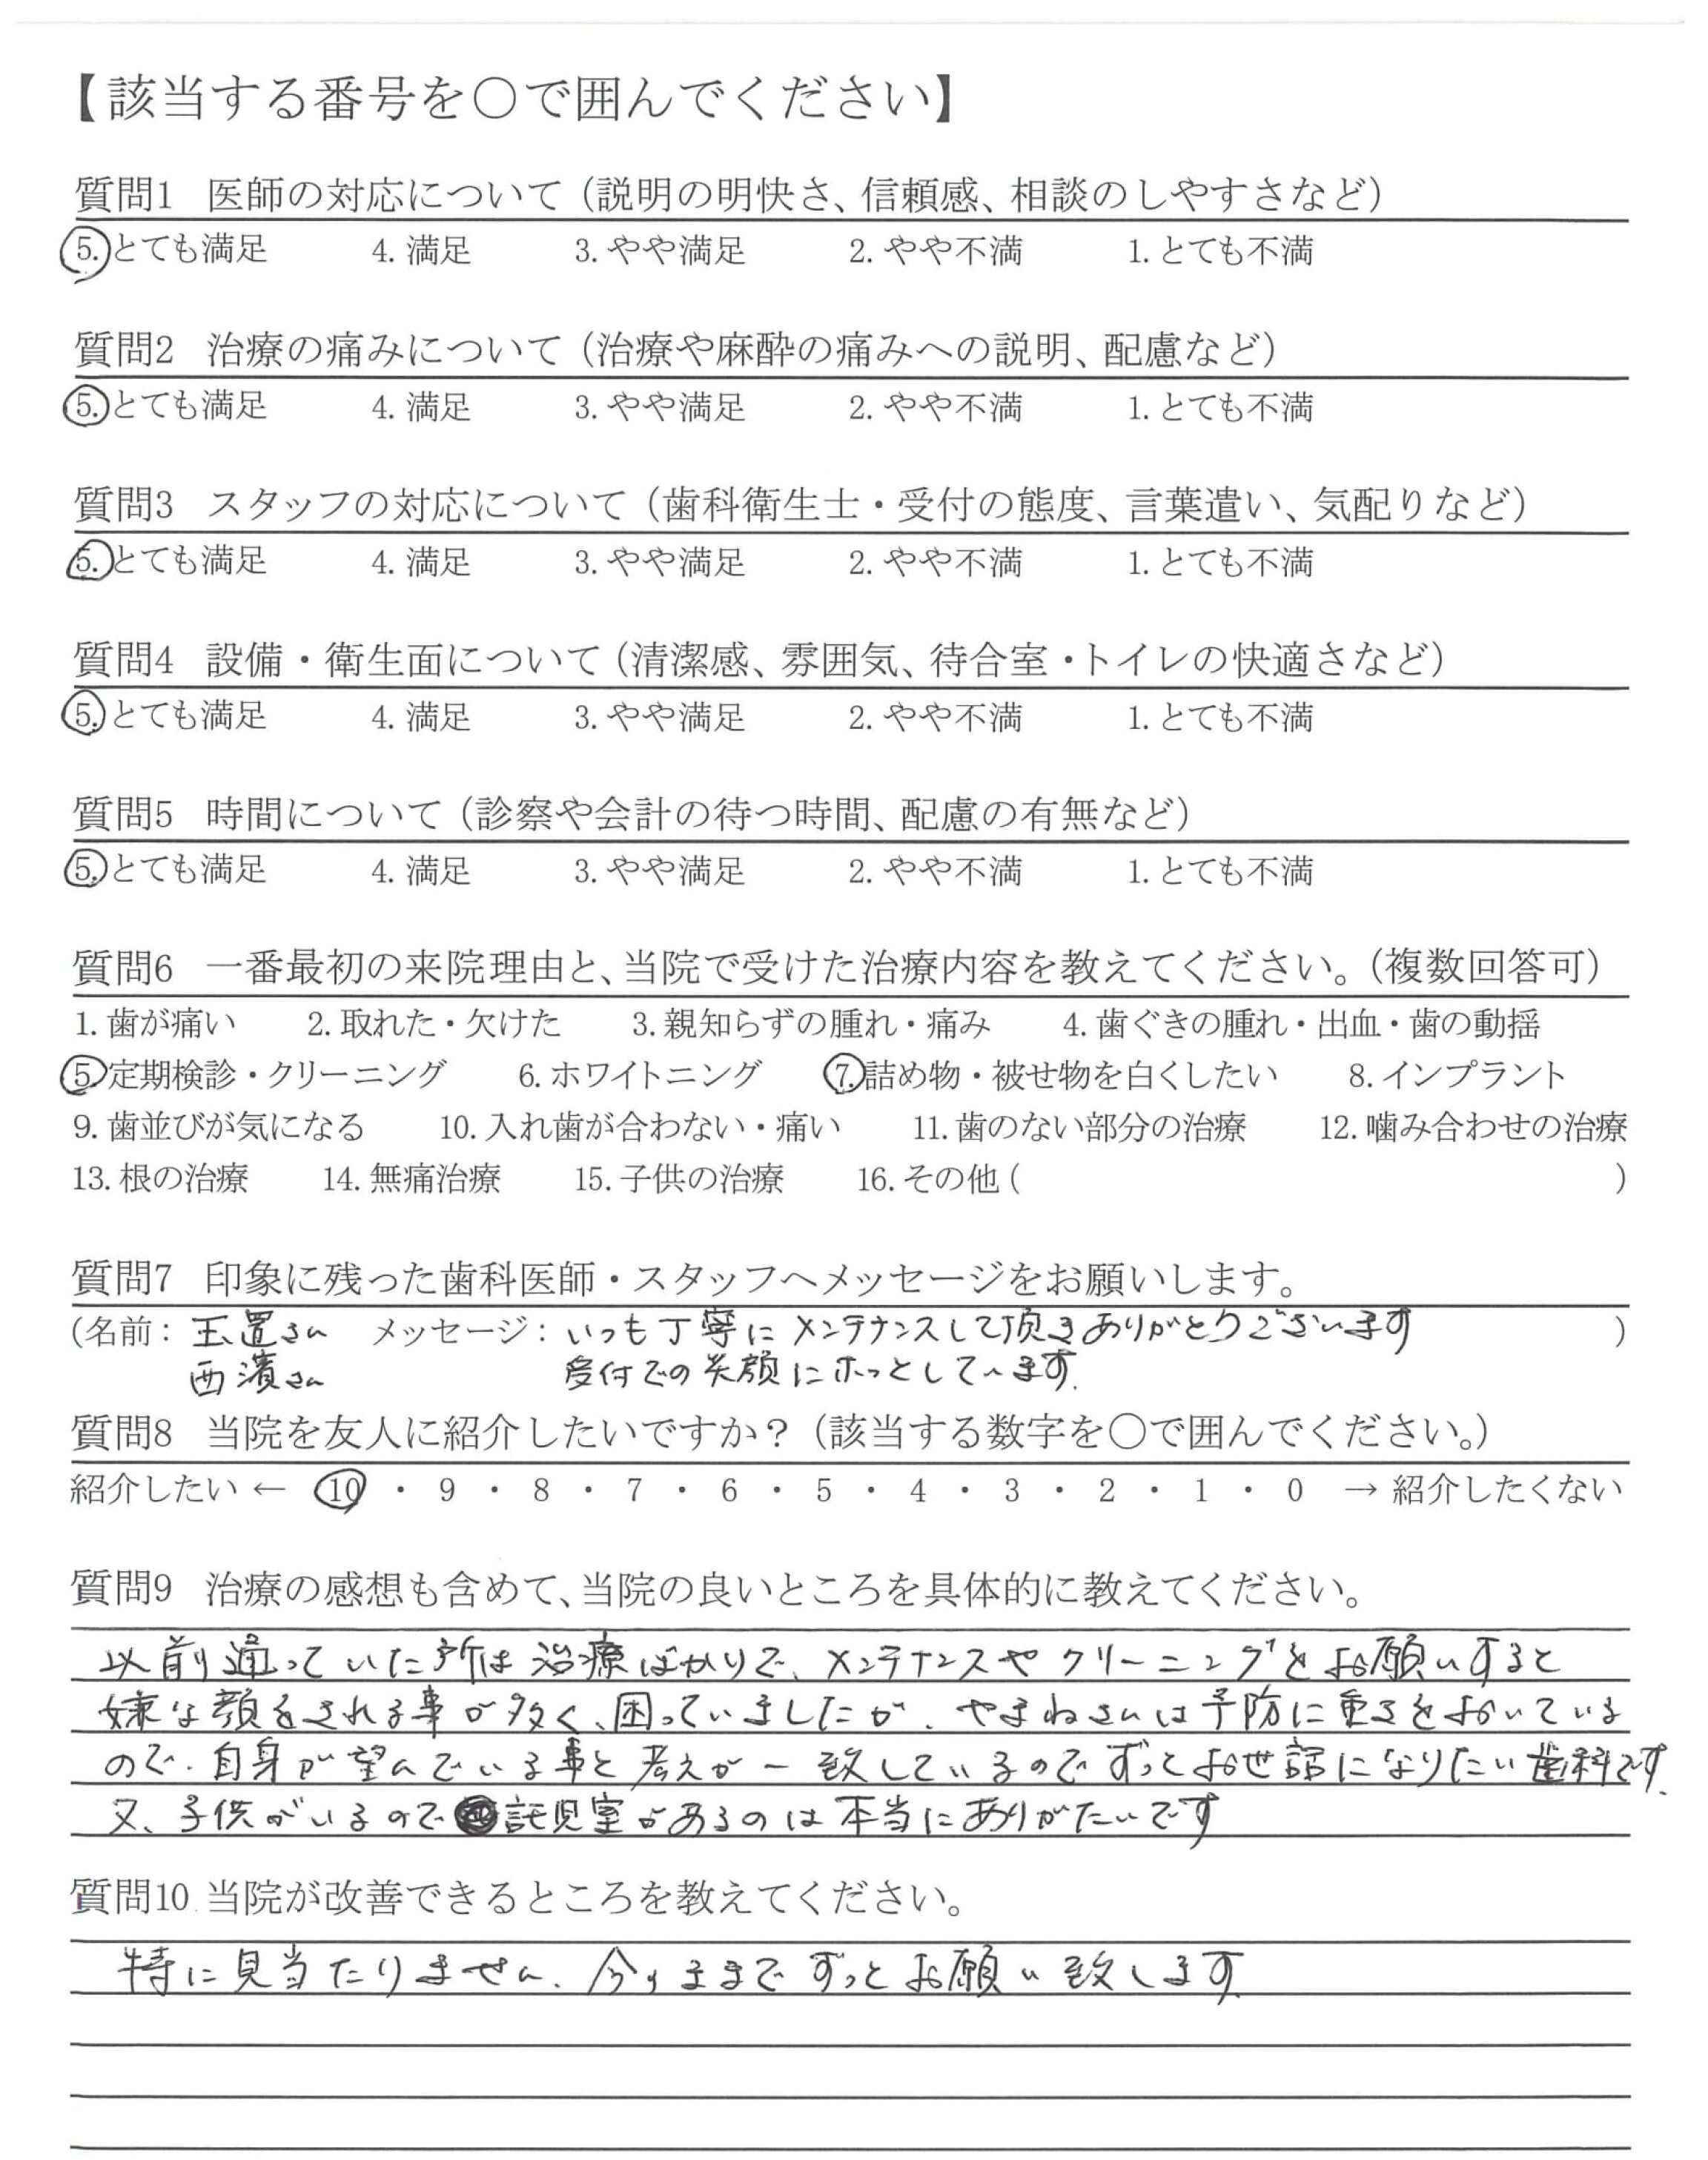 【該当する番号を○で囲んでください】
質問1 医師の対応について（説明の明快さ、信頼感、相談のしやすさなど）
5. とても満足 4. 満足 3. やや満足 2. やや不満 1. とても不満
質問2 治療の痛みについて（治療や麻酔の痛みへの説明、配慮など）
5. とても満足 4. 満足 3. やや満足 2. やや不満 1. とても不満
質問3 スタッフの対応について（歯科衛生士・受付の態度、言葉遣い、気配りなど）
5. とても満足 4. 満足 3. やや満足 2. やや不満 1. とても不満
質問4 設備・衛生面について（清潔感、雰囲気、待合室・トイレの快適さなど）
5. とても満足 4. 満足 3. やや満足 2. やや不満 1. とても不満
質問5 時間について（診察や会計の待つ時間、配慮の有無など）
5. とても満足 4. 満足 3. やや満足 2. やや不満 1. とても不満
質問6 一番最初の来院理由と、当院で受けた治療内容を教えてください。（複数回答可）
1. 歯が痛い 2. 取れた・欠けた 3. 親知らずの腫れ・痛み 4. 歯ぐきの腫れ・出血・歯の動揺
5. 定期検診・クリーニング 6. ホワイトニング 7. 詰め物・被せ物を白くしたい 8. インプラント
9. 歯並びが気になる 10. 入れ歯が合わない・痛い 11. 歯のない部分の治療 12. 噛み合わせの治療
13. 根の治療 14. 無痛治療 15. 子供の治療 16. その他（ ）
質問7 印象に残った歯科医師・スタッフへメッセージをお願いします。
（名前： 玉置さん メッセージ： いつも丁寧にメンテナンスして頂きありがとうございます ）
西濱さん 受付での笑顔にホっとしています。
質問8 当院を友人に紹介したいですか？（該当する数字を○で囲んでください。）
紹介したい ← 10 ・ 9 ・ 8 ・ 7 ・ 6 ・ 5 ・ 4 ・ 3 ・ 2 ・ 1 ・ 0 → 紹介したくない
質問9 治療の感想も含めて、当院の良いところを具体的に教えてください。
以前通っていた所は治療ばかりで、メンテナンスやクリーニングをお願いすると
嫌な顔をされる事が多く、困っていましたが、やまねさんは予防に重きをおいている
ので、自身が望んでいる事と考えが一致しているのでずっとお世話になりたい歯科です。
又、子供がいるので託児室があるのは本当にありがたいです
質問10 当院が改善できるところを教えてください。
特に見当たりません、今のままでずっとお願い致します。